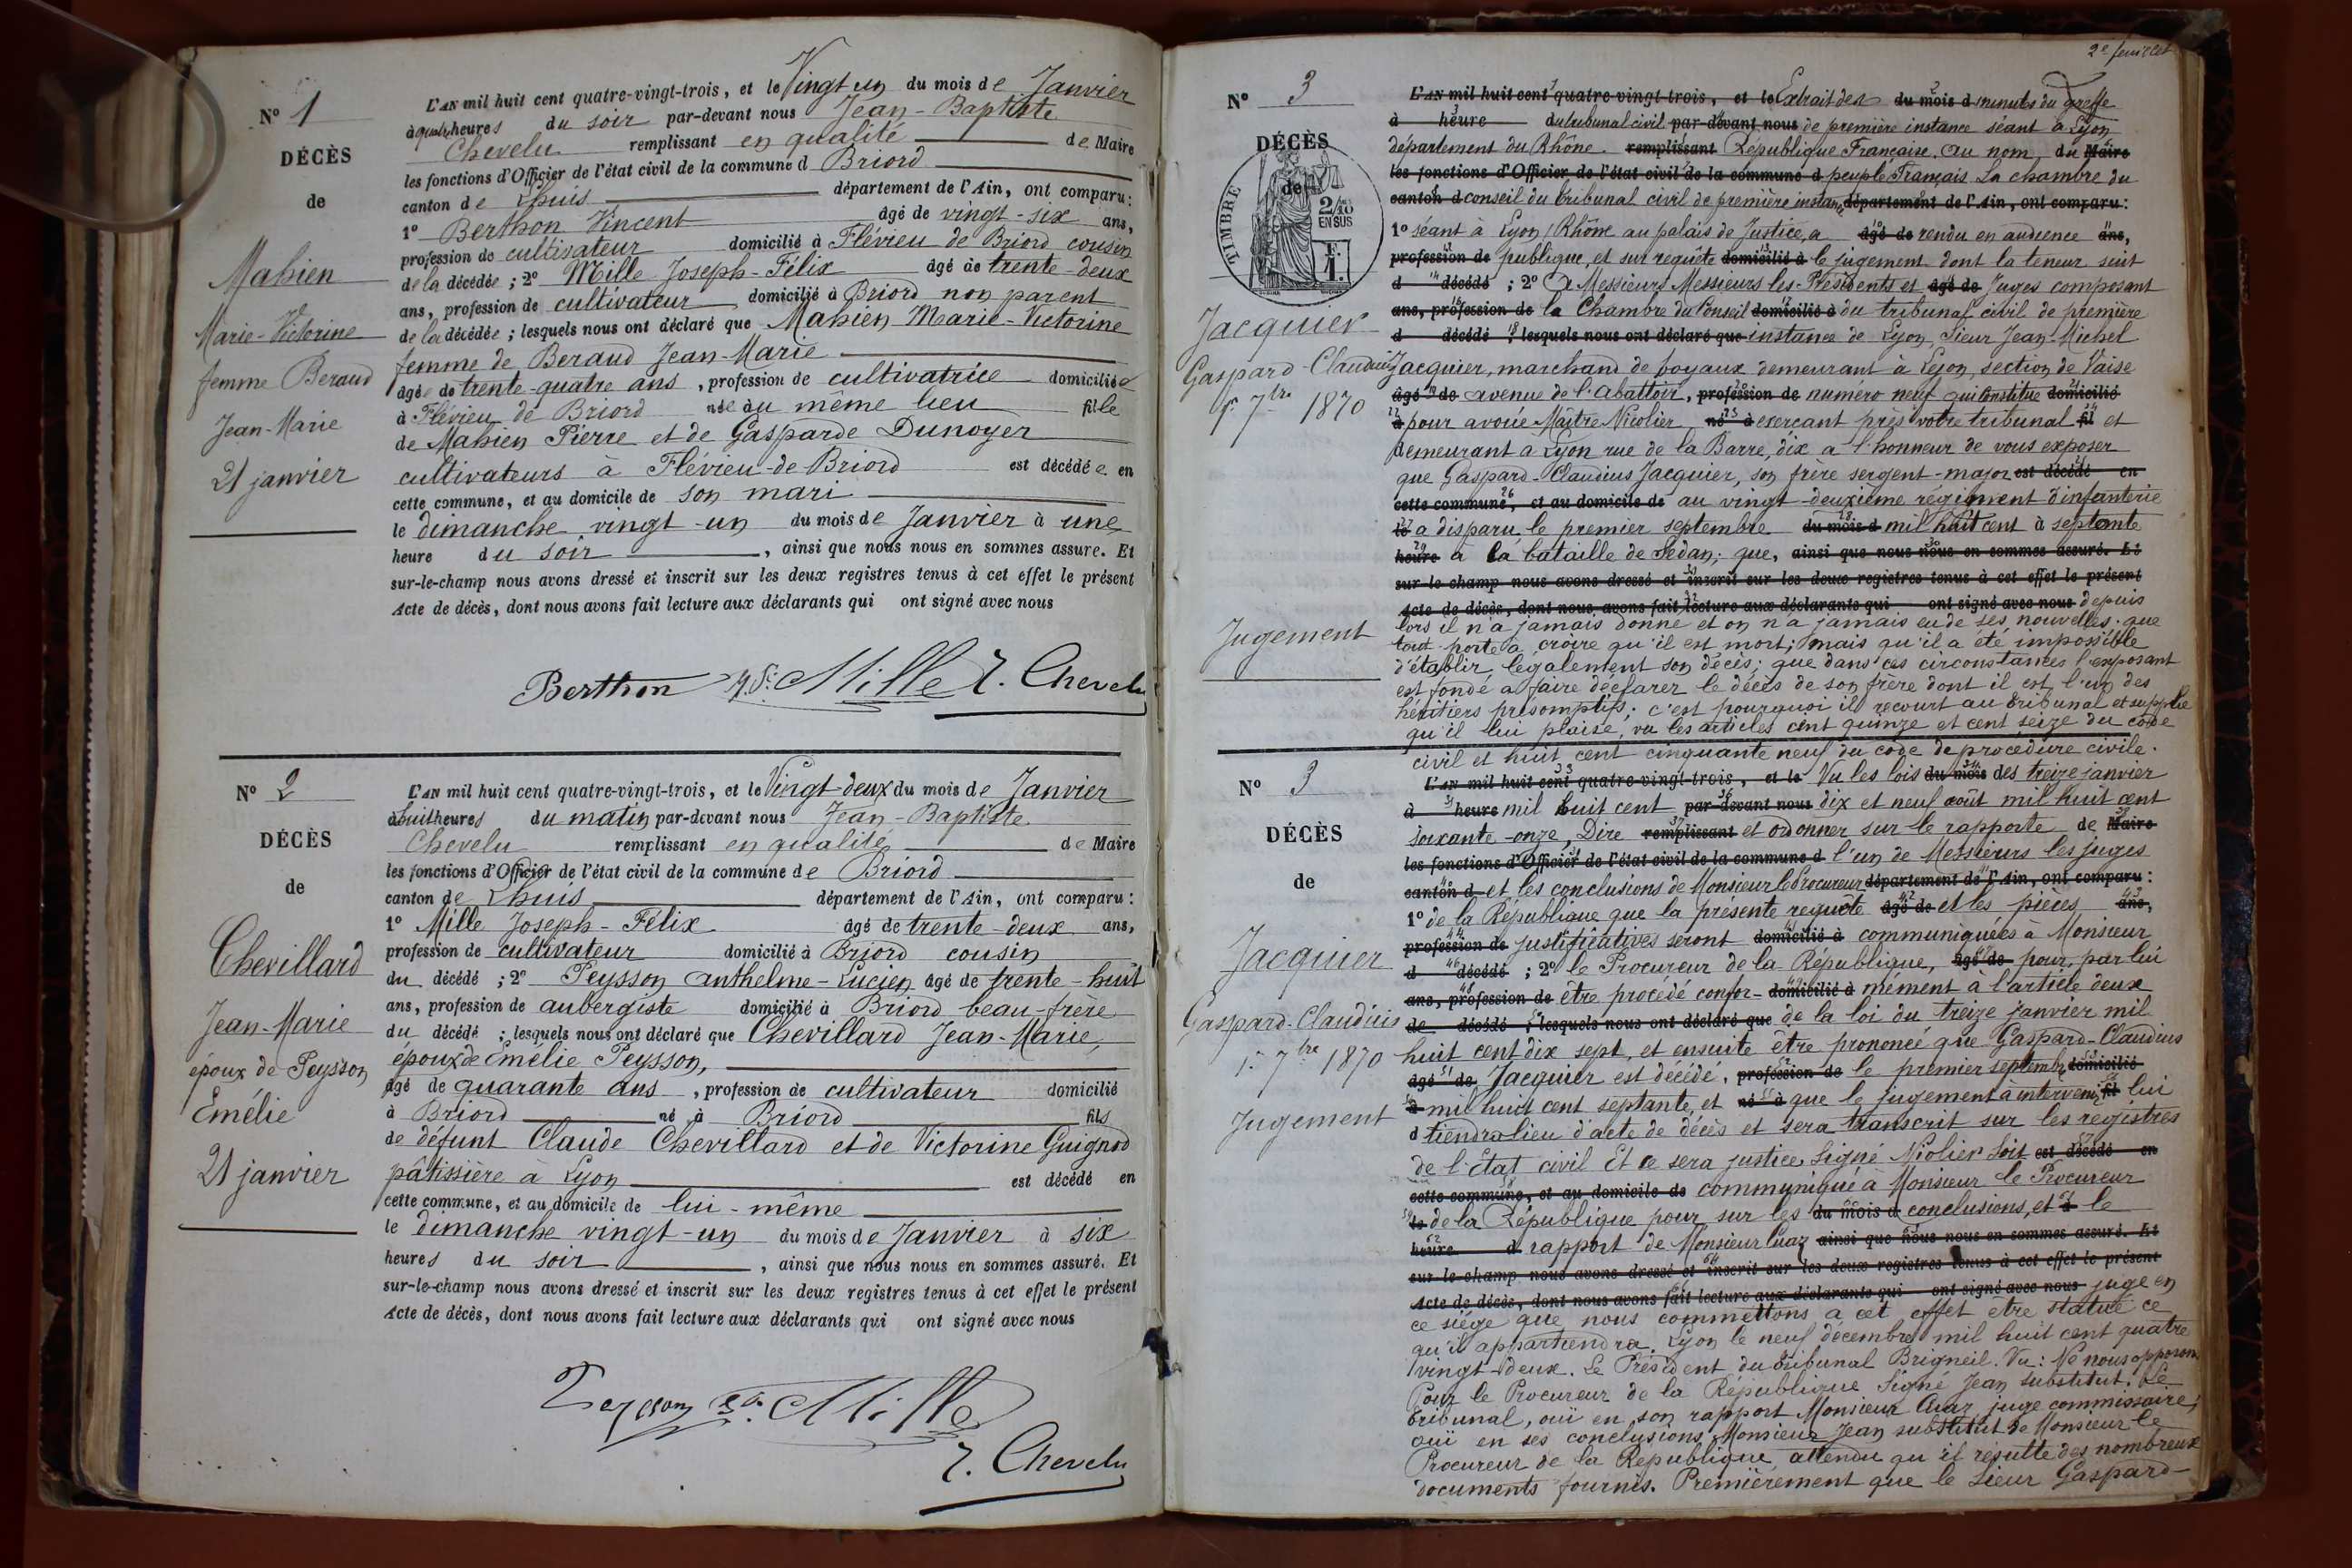 N° 1
DÉCÈS
de
Mahien
Marie-Victorine
femme Beraud
Jean-Marie
21 janvier
L'AN mil huit cent quatre-vingt-trois, et le Vingt un du mois de Janvier
à quatre heures du soir par-devant nous Jean-Baptiste
Chevelu remplissant en qualité de Maire
les fonctions d'Officier de l'état civil de la commune d Briord
canton de Lhuis département de l'Ain, ont comparu :
1° Berthon Vincent âgé de vingt-six ans,
profession de cultivateur domicilié à Flévieu de Briord cousin
de la décédée ; 2° Mille Joseph-Félix âgé de trente-deux
ans, profession de cultivateur domicilié à Briord non parent
de la décédée ; lesquels nous ont déclaré que Mahien Marie-Victorine
femme de Beraud Jean-Marie
âgée de trente-quatre ans, profession de cultivatrice domiciliée
à Flévieu de Briord née au même lieu fille
de Mahien Pierre et de Gasparde Dunoyer
cultivateurs à Flévieu-de-Briord est décédée en
cette commune, et au domicile de son mari
le dimanche vingt-un du mois de Janvier à une
heure du soir, ainsi que nous nous en sommes assuré. Et
sur-le-champ nous avons dressé et inscrit sur les deux registres tenus à cet effet le présent
Acte de décès, dont nous avons fait lecture aux déclarants qui ont signé avec nous
Berthon Mille J. Chevelu
N° 2
DÉCÈS
de
Chevillard
Jean-Marie
époux de Peysson
Emélie
21 janvier
L'AN mil huit cent quatre-vingt-trois, et le Vingt-deux du mois de Janvier
à huit heures du matin par-devant nous Jean-Baptiste
Chevelu remplissant en qualité de Maire
les fonctions d'Officier de l'état civil de la commune de Briord
canton de Lhuis département de l'Ain, ont comparu :
1° Mille Joseph-Félix âgé de trente-deux ans,
profession de cultivateur domicilié à Briord cousin
du décédé ; 2° Peysson Anthelme-Lucien âgé de trente-huit
ans, profession de aubergiste domicilié à Briord beau-frère
du décédé ; lesquels nous ont déclaré que Chevillard Jean-Marie,
époux de Emélie Peysson,
âgé de quarante ans, profession de cultivateur domicilié
à Briord né à Briord fils
de défunt Claude Chevillard et de Victorine Guignod
pâtissière à Lyon est décédé en
cette commune, et au domicile de lui-même
le dimanche vingt-un du mois de Janvier à six
heures du soir, ainsi que nous nous en sommes assuré. Et
sur-le-champ nous avons dressé et inscrit sur les deux registres tenus à cet effet le présent
Acte de décès, dont nous avons fait lecture aux déclarants qui ont signé avec nous
Peysson Mille
J. Chevelu
2e feuillet
N° 3
DÉCÈS
de
TIMBRE
2/10
EN SUS
F.
1.
Jacquier
Gaspard-Claudius
1er 7bre 1870
Jugement
L'AN mil huit cent quatre-vingt-trois, et le Extrait des du mois d minutes du greffe
à heure du tribunal civil par-devant nous de première instance séant à Lyon
département du Rhône. remplissant République Française. Au nom du Maire
les fonctions d'Officier de l'état civil de la commune d peuple Français La chambre du
canton d conseil du tribunal civil de première instance département de l'Ain, ont comparu :
1° séant à Lyon (Rhône au palais de Justice, a âgé de rendu en audience ans,
profession de publique, et sur requête domicilié à le jugement dont la teneur suit
d décédé ; 2° A Messieurs Messieurs les Présidents et âgé de Juges composant
ans, profession de la Chambre du Conseil domicilié à du tribunal civil de première
d décédé ; lesquels nous ont déclaré que instance de Lyon, Sieur Jean-Michel
Jacquier, marchand de boyaux demeurant à Lyon, section de Vaise
âgé de avenue de l'Abattoir, profession de numéro neuf qui constitue domicilié
à pour avoué Maître Nicolier né à exerçant près votre tribunal fil et
demeurant à Lyon rue de la Barre, dix a l'honneur de vous exposer
que Gaspard-Claudius Jacquier, son frère sergent-major est décédé en
cette commune, et au domicile de au vingt-deuxième régiment d'infanterie
le a disparu le premier septembre du mois d mil huit cent à septante
heure à la bataille de Sedan; que, ainsi que nous nous en sommes assuré. Et
sur-le-champ nous avons dressé et inscrit sur les deux registres tenus à cet effet le présent
Acte de décès, dont nous avons fait lecture aux déclarants qui ont signé avec nous depuis
lors il n'a jamais donné et on n'a jamais eu de ses nouvelles; que
tout porte à croire qu'il est mort; mais qu'il a été impossible
d'établir légalement son décès; que dans ces circonstances l'exposant
est fondé à faire déclarer le décès de son frère dont il est l'un des
héritiers présomptifs; c'est pourquoi il recourt au tribunal et supplie
qu'il lui plaise, vu les articles cent quinze et cent seize du code
civil et huit cent cinquante neuf du code de procédure civile.
N° 3
DÉCÈS
de
Jacquier
Gaspard-Claudius
1er 7bre 1870
Jugement
L'AN mil huit cent quatre-vingt-trois, et le Vu les lois du mois des treize janvier
à heure mil huit cent par-devant nous dix et neuf août mil huit cent
soixante-onze, Dire remplissant et ordonner sur le rapporte de Maire
les fonctions d'Officier de l'état civil de la commune d l'un de Messieurs les juges
canton d et les conclusions de Monsieur le Procureur département de l'Ain, ont comparu :
1° de la République que la présente requête âgé de et les pièces ans,
profession de justificatives seront domicilié à communiquées à Monsieur
d décédé ; 2° le Procureur de la République, âgé de pour, par lui
ans, profession de être procédé confor- domicilié à mément à l'article deux
de décédé ; lesquels nous ont déclaré que de la loi du treize janvier mil
huit cent dix sept, et ensuite être prononcé que Gaspard-Claudius
âgé de Jacquier est décédé, profession de le premier septembre domicilié
à mil huit cent septante, et né à que le jugement à intervenir fil lui
d tiendra lieu d'acte de décès et sera transcrit sur les registres
de l'État civil Et ce sera justice, Signé Niolier Soit est décédé en
cette commune, et au domicile de communiqué à Monsieur le Procureur
le de la République pour sur les du mois d conclusions, et à le
heure d rapport de Monsieur Cuaz ainsi que nous nous en sommes assuré. Et
sur-le-champ nous avons dressé et inscrit sur les deux registres tenus à cet effet le présent
Acte de décès, dont nous avons fait lecture aux déclarants qui ont signé avec nous juge en
ce siège que nous commettons à cet effet être statué ce
qu'il appartiendra. Lyon le neuf décembre mil huit cent quatre
vingt-deux. Le Président du tribunal Brigneil. Vu : Ne nous opposons
Pour le Procureur de la République Signé Jean substitut. Le
tribunal, ouï en son rapport Monsieur Cuaz juge commissaire,
ouï en ses conclusions Monsieur Jean substitut de Monsieur le
Procureur de la République, attendu qu'il résulte des nombreux
documents fournis. Premièrement que le Sieur Gaspard-